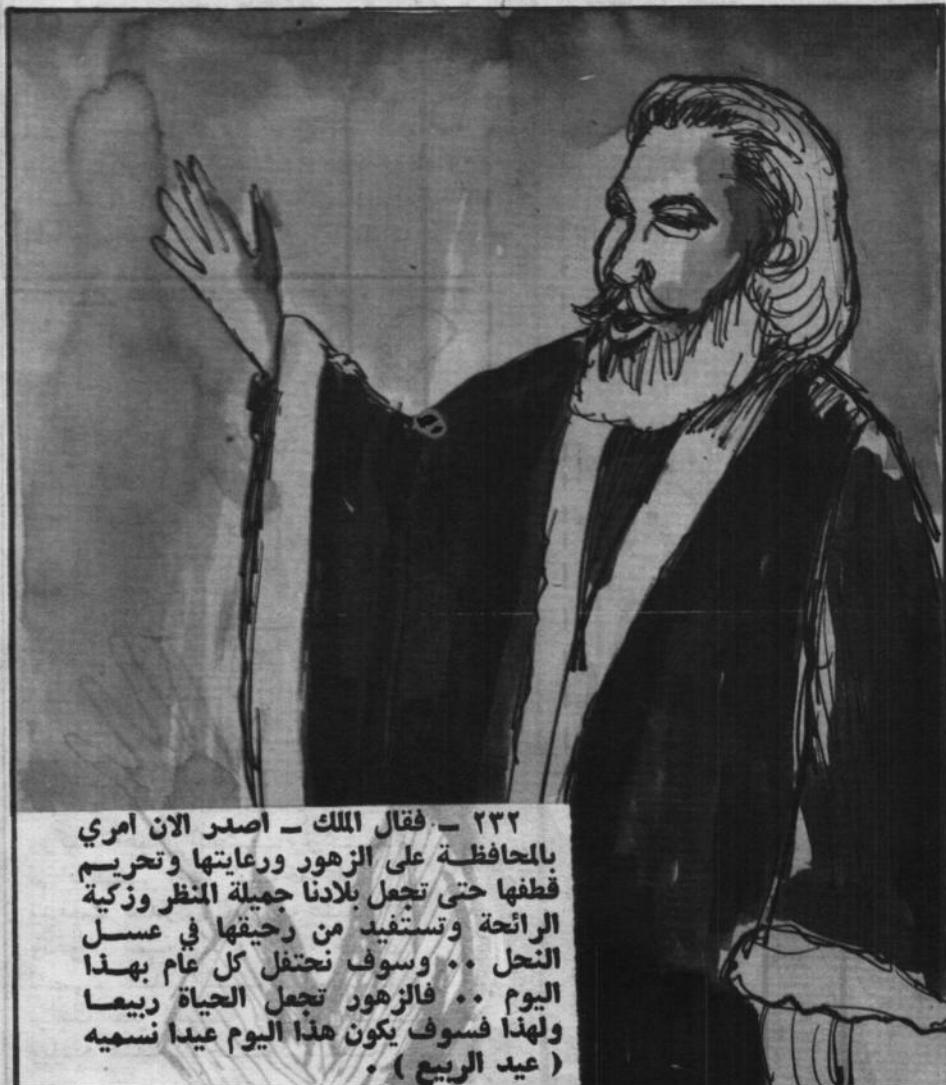 ٢٣٢ ــ فقال الملك ــ اصدر الان امري
بالمحافظة على الزهور ورعايتها وتحريم
قطفها حتى تجعل بلادنا جميلة المنظر وزكية
الرائحة وتستفيد من رحيقها في عسل
النحل .. وسوف نحتفل كل عام بهذا
اليوم .. فالزهور تجعل الحياة ربيعا
ولهذا فسوف يكون هذا اليوم عيدا نسميه
( عيد الربيع ) .